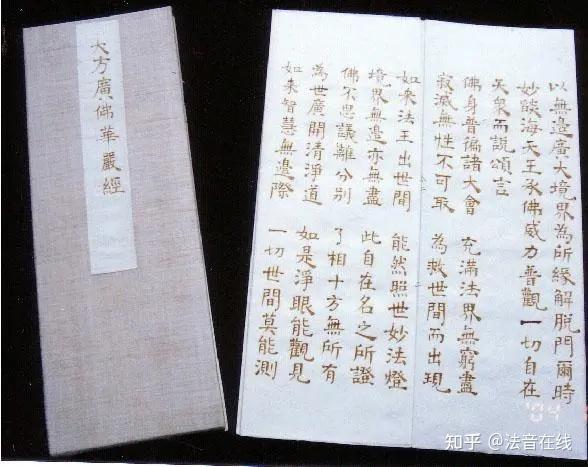 大方廣佛華嚴經
以無邊廣大境界為所緣解脫門爾時
妙燄海天王承佛威力普觀一切自在
天眾而說頌言
佛身普徧諸大會 充滿法界無窮盡
寂滅無性不可取 為救世間而出現
如來法王出世間 能然照世妙法燈
境界無邊亦無盡 此自在名之所證
佛不思議離分別 了相十方無所有
為世廣開清淨道 如是淨眼能觀見
如來智慧無邊際 一切世間莫能測
'04
知乎 @法音在线